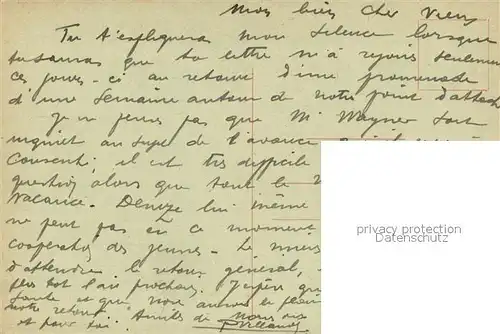 Mon bien cher Vieux
Tu t'expliqueras mon silence lorsque
tu sauras que ta lettre m'a rejoins seulement
ces jours-ci au retour d'une promenade
d'une semaine autour de notre point d'attache
Je ne pense pas que Mr Wagner soit
inquiet au sujet de l'avance
consenti; il est très difficile
question alors que tout le
vacance. Deneze lui même
ne peut pas en ce moment
coopérative des jeunes - Le mieux
d'attendre le retour général,
plus tot l'an prochain. J'espère que
santé et que nous aurons le plaisir
notre retour. Amitiés de nous
et pour toi.
privacy protection
Datenschutz